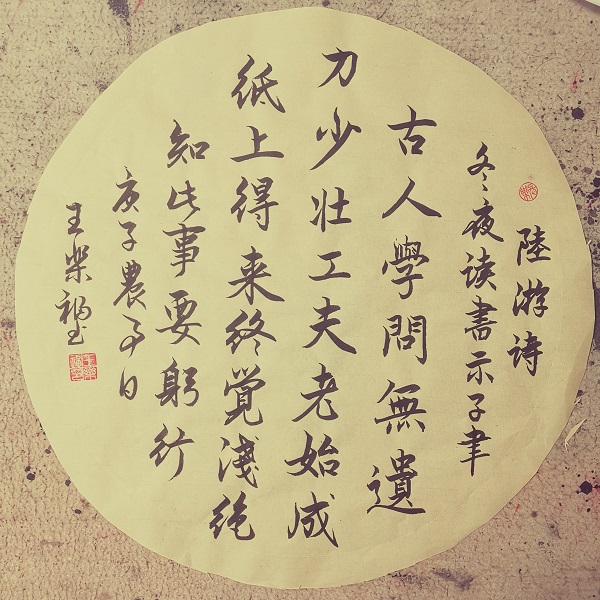 陸游诗
冬夜读書示子聿
古人學問無遺
力少壮工夫老始成
纸上得来终覺淺绝
知此事要躬行
庚子農日
王